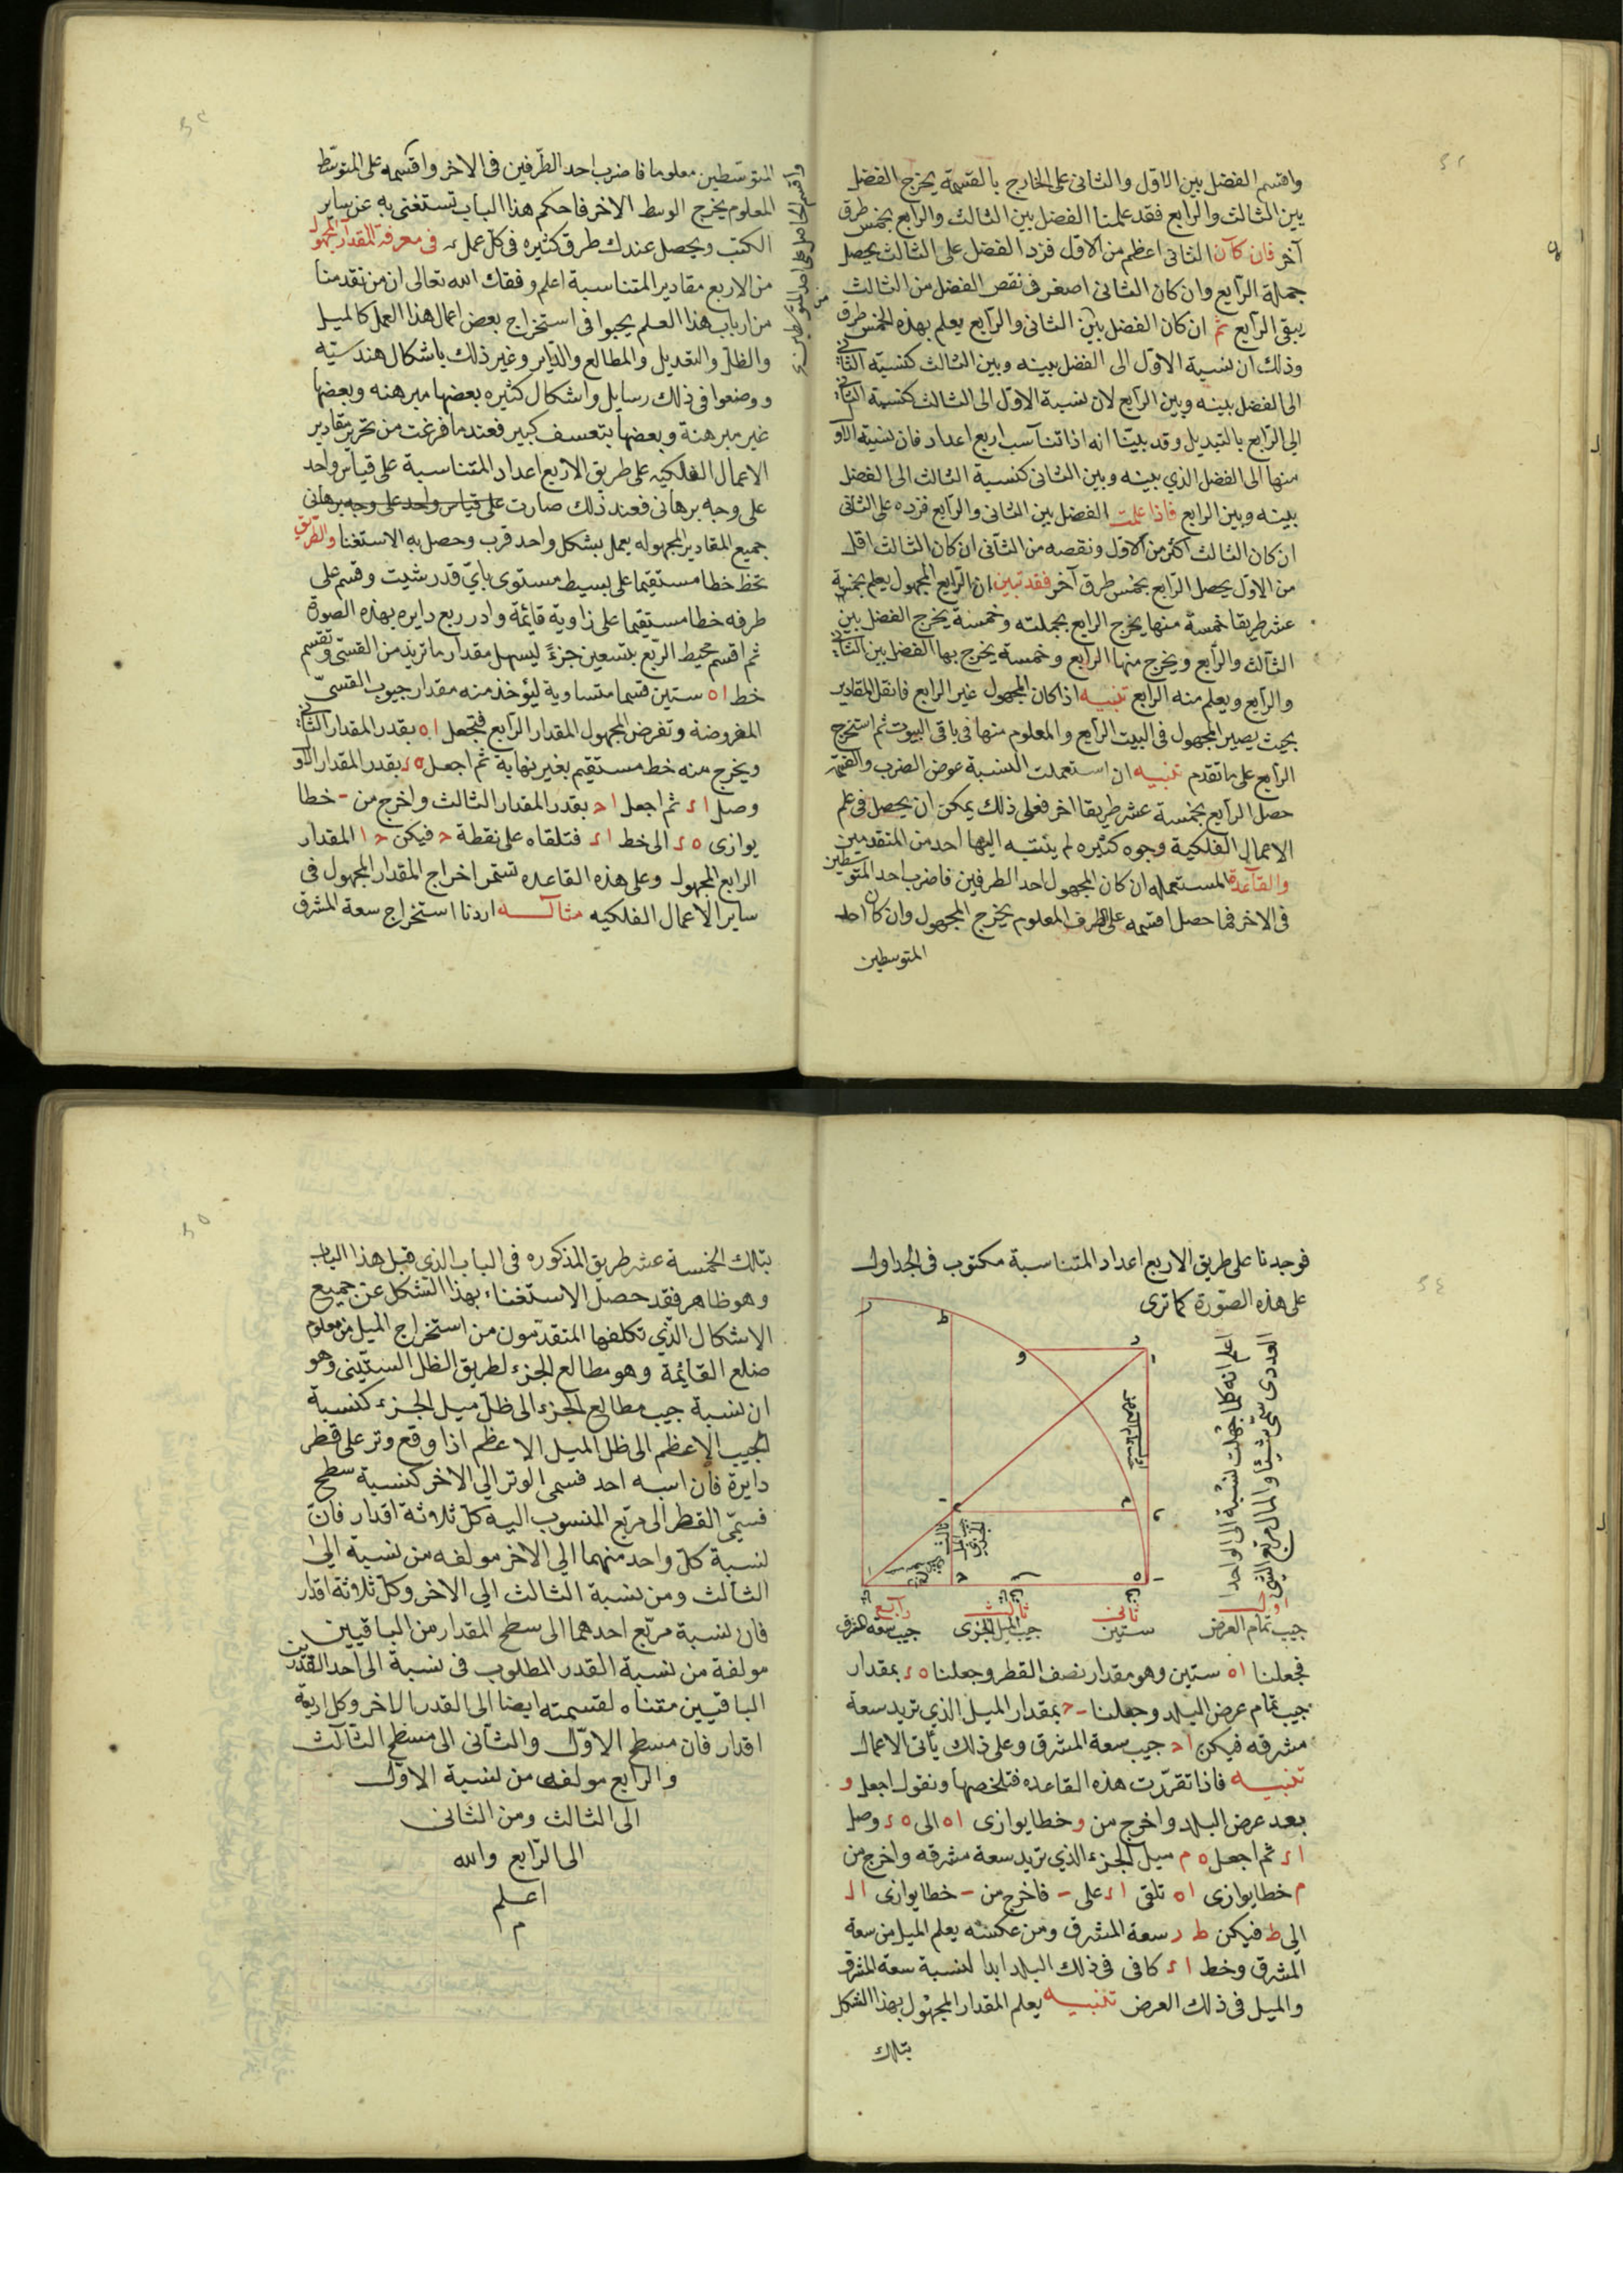 واقسم الفضل بين الاول والثانى على الخارج بالقسمة يخرج الفضل
بين الثالث والرابع فقد علمنا الفضل بين الثالث والرابع بخمس طرق
آخر فان كان الثانى اعظم من الاول فزد الفضل على الثالث يحصل
جملة الرابع وان كان الثانى اصغر فنقص الفضل من الثالث
يبقى الرابع ثم ان كان الفضل بين الثانى والرابع يعلم بهذه الخمس طرق
وذلك ان نسبة الاول الى الفضل بينه وبين الثالث كنسبة الثانى
الى الفضل بينه وبين الرابع لان نسبة الاول الى الثالث كنسبة الثانى
الى الرابع بالتبديل وقد بيّنا انه اذا تناسب اربع اعداد فان نسبة الاول
منها الى الفضل الذي بينه وبين الثانى كنسبة الثالث الى الفضل
بينه وبين الرابع فاذا علمت الفضل بين الثانى والرابع فزده على الثانى
ان كان الثالث اكثر من الاول ونقصه من الثانى ان كان الثالث اقل
من الاول يحصل الرابع بخمس طرق آخر فقد تبين ان الرابع المجهول يعلم بخمسة
عشر طريقا خمسة منها يخرج الرابع بجملته وخمسة يخرج الفضل بين
الثالث والرابع ويخرج منها الرابع وخمسة يخرج بها الفضل بين الثانى
والرابع ويعلم منه الرابع تنبيه اذا كان المجهول غير الرابع فانقل المقادير
بحيث يصير المجهول فى البيت الرابع والمعلوم منها فى باقى البيوت ثم استخرج
الرابع على ما تقدم تنبيه ان استعملت النسبة عوض الضرب والقسمة
حصل الرابع بخمسة عشر طريقا اخر فعلى ذلك يمكن ان يحصل فى علم
الاعمال الفلكية وجوه كثيره لم ينتبه اليها احد من المتقدمين
والقاعدة المستعمله ان كان المجهول احد الطرفين فاضرب احد المتوسطين
فى الاخر فما حصل اقسمه على الطرف المعلوم يخرج المجهول وان كان احد
المتوسطين
المتوسطين معلوما فاضرب احد الطرفين فى الاخر واقسمه على المتوسط
المعلوم يخرج الوسط الاخر فاحكم هذا الباب تستغنى به عن ساير
الكتب ويحصل عندك طرق كثيره فى كل عمل فى معرفة المقدار المجهول
من الاربع مقادير المتناسبة اعلم وفقك الله تعالى ان من تقدمنا
من ارباب هذا العلم يجيبوا فى استخراج بعض اعمال هذا العمل كالميل
والظل والتعديل والمطالع والداير وغير ذلك باشكال هندسيه
ووضعوا فى ذلك رسايل واشكال كثيره بعضها مبرهنه وبعضها
غير مبرهنة وبعضها بتعسف كبير فعند ما فرغت من تحرير مقادير
الاعمال الفلكيه على طريق الاربع اعداد المتناسبة على قياس واحد
على وجه برهانى فعند ذلك صارت على قياس واحد على وجه برهانى
جميع المقادير المجهوله يعمل بشكل واحد قرب وحصل به الاستغنا والطريق
تخط خطا مستقيما على بسيط مستوى باي قدر شيت وقسم على
طرفه خطا مستقيما على زاوية قايمة وادر ربع دايره بهذه الصورة
ثم اقسم محيط الربع بتسعين جزءً ليسهل مقدار ما تريد من القسى وتقسم
خط ا ه ستين قسما متساوية ليؤخذ منه مقدار جيوب القسىّ
المفروضة وتفرض المجهول المقدار الرابع فتجعل ا ه بقدر المقدار الثانى
ويخرج منه خط مستقيم بغير نهاية ثم اجعل ه ر بقدر المقدار الاول
وصل ا ر ثم اجعل ا ح بقدر المقدار الثالث واخرج من ب خطا
يوازى ه ر الى خط ا ر فتلقاه على نقطة ح فيكن ح ا المقدار
الرابع المجهول وعلى هذه القاعده تستمر اخراج المقدار المجهول فى
ساير الاعمال الفلكيه مثاله اردنا استخراج سعة المشرق
فوجدنا على طريق الاربع اعداد المتناسبة مكتوب فى الجداول
على هذه الصورة كما ترى
اعلم انه كلما جهلت نسبة الى الواحد
العددى سمّى شيئا والمال مربع الشى
اول ثانى ثالث رابع
جيب تمام العرض ستين جيب الميل الجزوى جيب سعة المشرق
فجعلنا ا ه ستين وهو مقدار نصف القطر وجعلنا ه ر بمقدار
جيب تمام عرض البلد وجعلنا ب ح بمقدار الميل الذي تريد سعة
مشرقه فيكن ا ح جيب سعة المشرق وعلى ذلك يأتى الاعمال
تنبيه فاذا تقررت هذه القاعده فتلخصها ونقول اجعل و
بعد عرض البلد واخرج من و خطا يوازى ا ه الى ه ر وصل
ا ر ثم اجعل ه م ميل الجزء الذي تريد سعة مشرقه واخرج من
م خطا يوازى ا ه تلقى ا ر على ب فاخرج من ب خطا يوازى ا ل
الى ط فيكن ط ر سعة المشرق ومن عكسه يعلم الميل من سعة
المشرق وخط ا ر كافى فى ذلك البلد ابدا لنسبة سعة المشرق
والميل فى ذلك العرض تنبيه يعلم المقدار المجهول بهذا الشكل
بتلك
بتلك الخمسة عشر طريق المذكوره فى الباب الذى قبل هذا الباب
وهو ظاهر فقد حصل الاستغناء بهذا الشكل عن جميع
الاشكال الذي تكلفها المتقدمون من استخراج الميل من معلوم
ضلع القايمة وهو مطالع الجزء لطريق الظل الستينى وهو
ان نسبة جيب مطالع الجزء الى ظل ميل الجزء كنسبة
الجيب الاعظم الى ظل الميل الاعظم اذا وقع وتر على قطر
دايرة فان نسبه احد قسمى الوتر الى الاخر كنسبة سطح
قسمّى القطر الى مربع المنسوب اليه كل ثلاثة اقدار فان
نسبة كل واحد منهما الى الاخر مولفه من نسبة الى
الثالث ومن نسبة الثالث الى الاخر وكل ثلاثة اقدار
فان نسبة مربع احدهما الى سطح المقدار من الباقيين
مولفة من نسبة القدر المطلوب فى نسبة الى احد القدرين
الباقيين مثناه لقسمته ايضا الى القدر الاخر وكل اربعة
اقدار فان مسطح الاول والثانى الى مسطح الثالث
والرابع مولفه من نسبة الاول
الى الثالث ومن الثانى
الى الرابع والله
اعلم
م